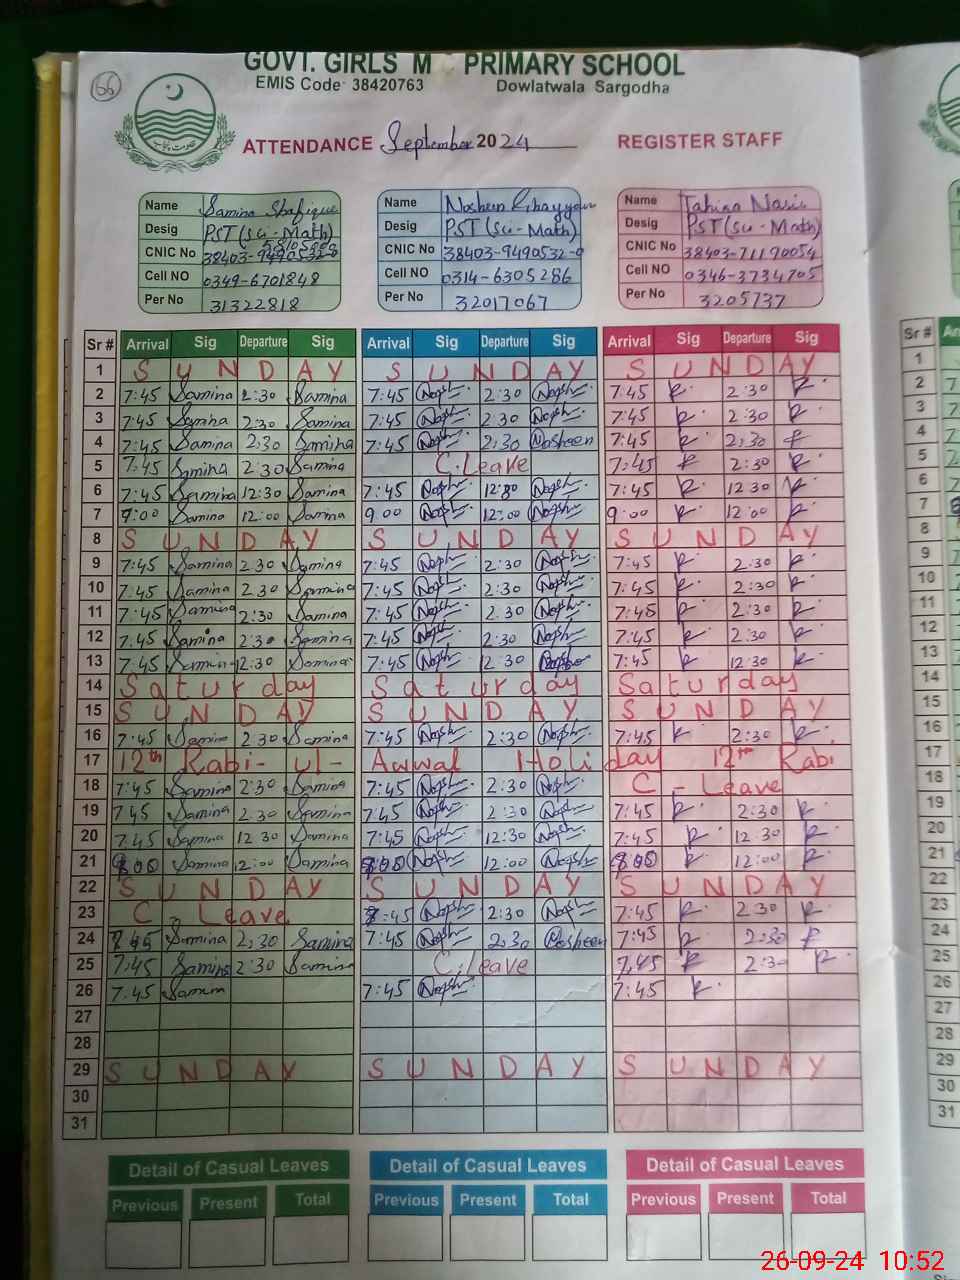 GOVT. GIRLS M PRIMARY SCHOOL
66 EMIS Code 38420763 Dowlatwala Sargodha
ATTENDANCE September 2024 REGISTER STAFF
Name Samina Shafique Name Nosheen Name Tahira
Desig PST (Sci - Math) Desig PST (Sci - Math) Desig PST (Sci - Math)
CNIC No 38403- CNIC No 38403-9490532-0 CNIC No 38403-71190054
Cell NO 0349-6701848 Cell NO 0314-6305286 Cell NO 0346-3734705
Per No 31322818 Per No 32017067 Per No 3205737
Sr # Arrival Sig Departure Sig Arrival Sig Departure Sig Arrival Sig Departure Sig
1 SUNDAY SUNDAY SUNDAY
2 7:45 Samina 2:30 Samina 7:45 Nosh 2:30 Nosh 7:45 2:30
3 7:45 Samina 2:30 Samina 7:45 Nosh 2:30 Nosh 7:45 2:30
4 7:45 Samina 2:30 Samina 7:45 Nosh 2:30 Nosheen 7:45 2:30
5 7:45 Samina 2:30 Samina C.Leave 7:45 2:30
6 7:45 Samina 12:30 Samina 7:45 Nosh 12:30 Nosh 7:45 12 30
7 9:00 Samina 12:00 Samina 9 00 Nosh 12:00 Nosh 9:00 12:00
8 SUNDAY SUNDAY SUNDAY
9 7:45 Samina 2 30 Samina 7:45 Nosh 2:30 Nosh 7:45 2:30
10 7:45 Samina 2 30 Samina 7:45 Nosh 2:30 Nosh 7:45 2:30
11 7:45 Samina 2:30 Samina 7:45 Nosh 2.30 Nosh 7:45 2:30
12 7:45 Samina 2:30 Samina 7:45 Nosh 2:30 Nosh 7:45 2:30
13 7:45 Samina 12:30 Samina 7:45 Nosh 12:30 7:45 12:30
14 Saturday Saturday Saturday
15 SUNDAY SUNDAY SUNDAY
16 7:45 Samina 2:30 Samina 7:45 Nosh 2:30 Nosh 7:45 2:30
17 12th Rabi-ul-Awwal Holiday 12th Rabi
18 7:45 Samina 2:30 Samina 7:45 Nosh 2:30 Nosh C - Leave
19 7 45 Samina 2:30 Samina 7:45 Nosh 2:30 Nosh 7:45 2:30
20 7:45 Samina 12 30 Samina 7:45 Nosh 12:30 Nosh 7:45 12:30
21 8:00 Samina 12:00 Samina 8:00 Nosh 12:00 Nosh 8:00 12:00
22 SUNDAY SUNDAY SUNDAY
23 C - Leave 7:45 Nosh 2:30 Nosh 7:45 2:30
24 7:45 Samina 2:30 Samina 7:45 Nosh 2:30 Nosheen 7:45 2:30
25 7:45 Samina 2:30 Samina C.Leave 7:45 2:30
26 7:45 Samina 7:45 Nosh 7:45
27
28
29 SUNDAY SUNDAY SUNDAY
30
31
Detail of Casual Leaves Detail of Casual Leaves Detail of Casual Leaves
Previous Present Total Previous Present Total Previous Present Total
26-09-24 10:52